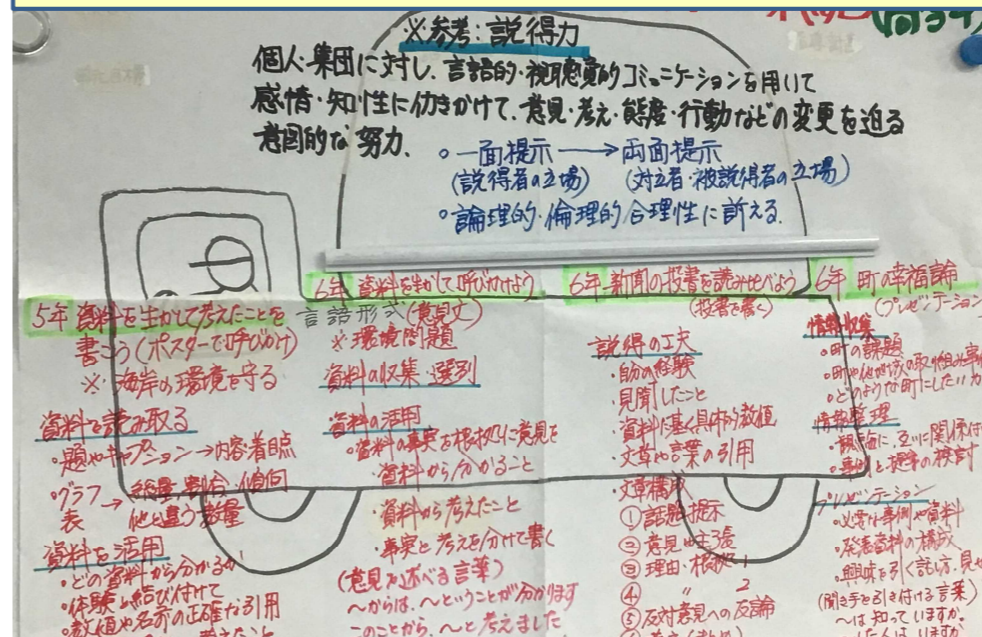 ※参考:説得力
個人・集団に対し、言語的・視聴覚的コミュニケーションを用いて
感情・知性に働きかけて、意見・考え・態度・行動などの変更を迫る
意図的な努力.
◦一面提示→両面提示
(説得者の立場) (対立者・被説得者の立場)
◦論理的・倫理的合理性に訴える.
5年 資料を生かして考えたことを
書こう(ポスターで呼びかけ)
※海岸の環境を守る
資料を読み取る
◦題やキャプション→内容・着目点
◦グラフ 表→総量・割合・傾向
他と違う数量
資料を活用
◦どの資料から分かるか
◦体験と結び付けて
◦数値や名前の正確な引用
考えたこと
6年 資料を生かして呼びかけよう
言語形式(意見文)
※環境問題
資料の収集・選別
資料の活用
◦資料の事実を根拠に意見を
・資料から分かること
・資料から考えたこと
・事実と考えを分けて書く
(意見を述べる言葉)
〜からは、〜ということが分かります
このことから、〜と考えました
6年 新聞の投書を読み比べよう
(投書を書く)
説得の工夫
・自分の経験
・見聞したこと
・資料に基く具体的数値
・文章や言葉の引用
・文章構成
①話題の提示
②意見の主張
③理由・根拠1
④ 〃 2
⑤反対意見への反論
6年 町の幸福論
(プレゼンテーション
情報収集
◦町の課題
◦町や他地域の取り組み事例
◦どのような町にしたいか
情報整理
◦観点毎に、互いに関係付け
◦事例と提案の検討
プレゼンテーション
◦必要な事例や資料
◦発表資料の構成
◦興味を引く話し方、見せ
(聞き手を引き付ける言葉)
〜は知っていますか。